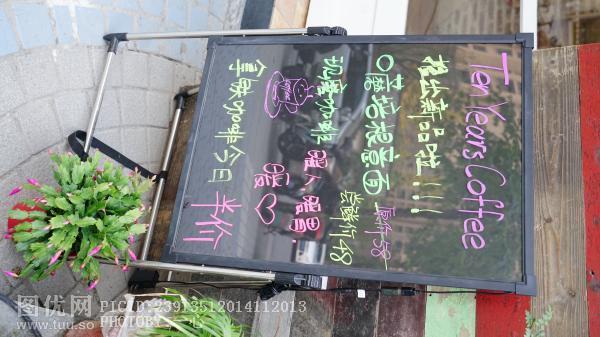 Ten Years Coffee
推出新品啦!!!
蘑菇培根意面
原价58
尝鲜价48
现磨咖啡
暖人暖胃
暖♡
咖啡今日
半价
图优网
www.tuu.so
PICID:23913512014112013
PHOTOBY: